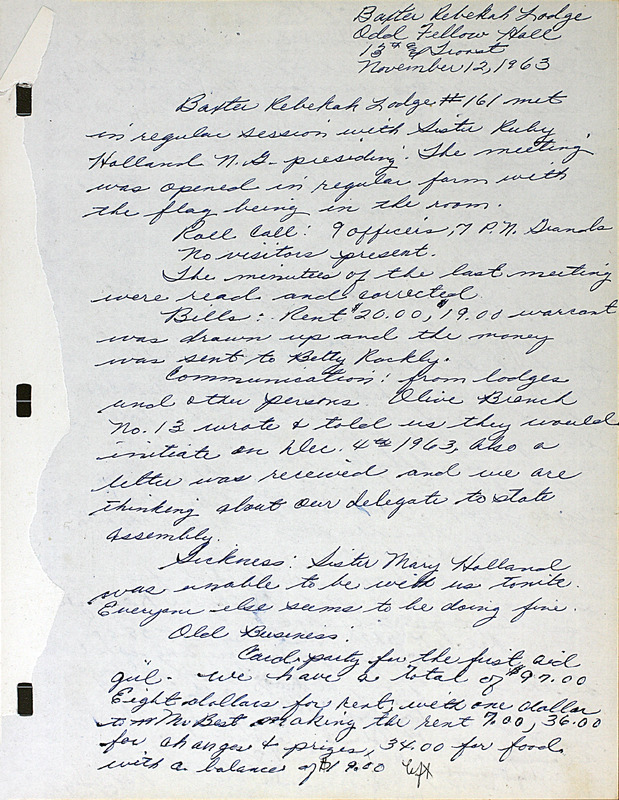 Baxter Rebekah Lodge
Odd Fellow Hall
13th & Troost
November 12, 1963
Baxter Rebekah Lodge #161 met
in regular session with Sister Ruby
Holland N.G. presiding. The meeting
was opened in regular form with
the flag being in the room.
Roll Call: 9 officers, 7 P.N. Grands
No visitors present.
The minutes of the last meeting
were read and corrected
Bills: Rent $20.00, $19.00 warrant
was drawn up and the money
was sent to Betty Rockly.
Communisation: from lodges
and other persons. Olive Branch
No. 13 wrote & told us they would
initiate on Dec. 4th 1963, also a
letter was received and we are
thinking about our delegate to state
assembly.
Sickness: Sister Mary Holland
was unable to be with us tonite.
Everyone else seems to be doing fine.
Old Business:
Card party for the first aid
girl. we have a total of $97.00
Eight dollars for rent, with one dollar
to Mr Best making the rent 7.00, 36.00
for changes & prizes, 34.00 for food
with a balance of $19.00 left